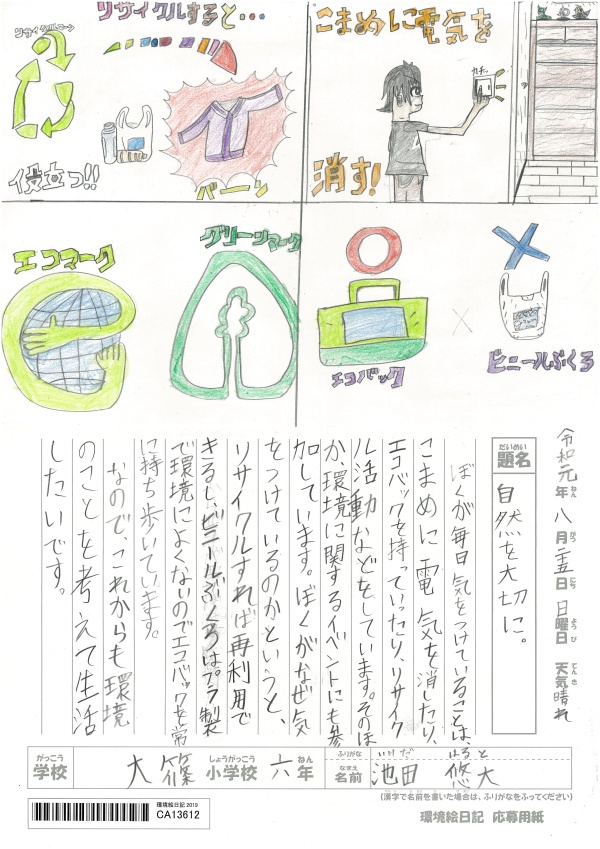 リサイクルマーク
リサイクルすると…
役立つ!!
バーーン
こまめに電気を
カチッ
消す!
エコマーク
グリーンマーク
エコバック
×
ビニールぶくろ
令和元年ねん八月がつ二五日にち日曜日ようび天気てんき晴れ
題名だいめい
自然を大切に。
ぼくが毎日気をつけていることは、
こまめに電気を消したり、
エコバックを持っていったり、リサイク
ル活動などをしています。そのほ
か、環境に関するイベントにも参
加しています。ぼくがなぜ気
をつけているのかというと、
リサイクルすれば再利用で
きるし、ビニールぶくろはプラ製
で環境によくないのでエコバックを常
に持ち歩いています。
なので、これからも環境
のことを考えて生活
したいです。
がっこう しょうがっこう ねん ふりがな いけだ はると
学校 大篠 小学校 六年 なまえ 名前 池田 悠大
(漢字で名前を書いた場合は、ふりがなをふってください)
環境絵日記 2019
CA13612
環境絵日記 応募用紙